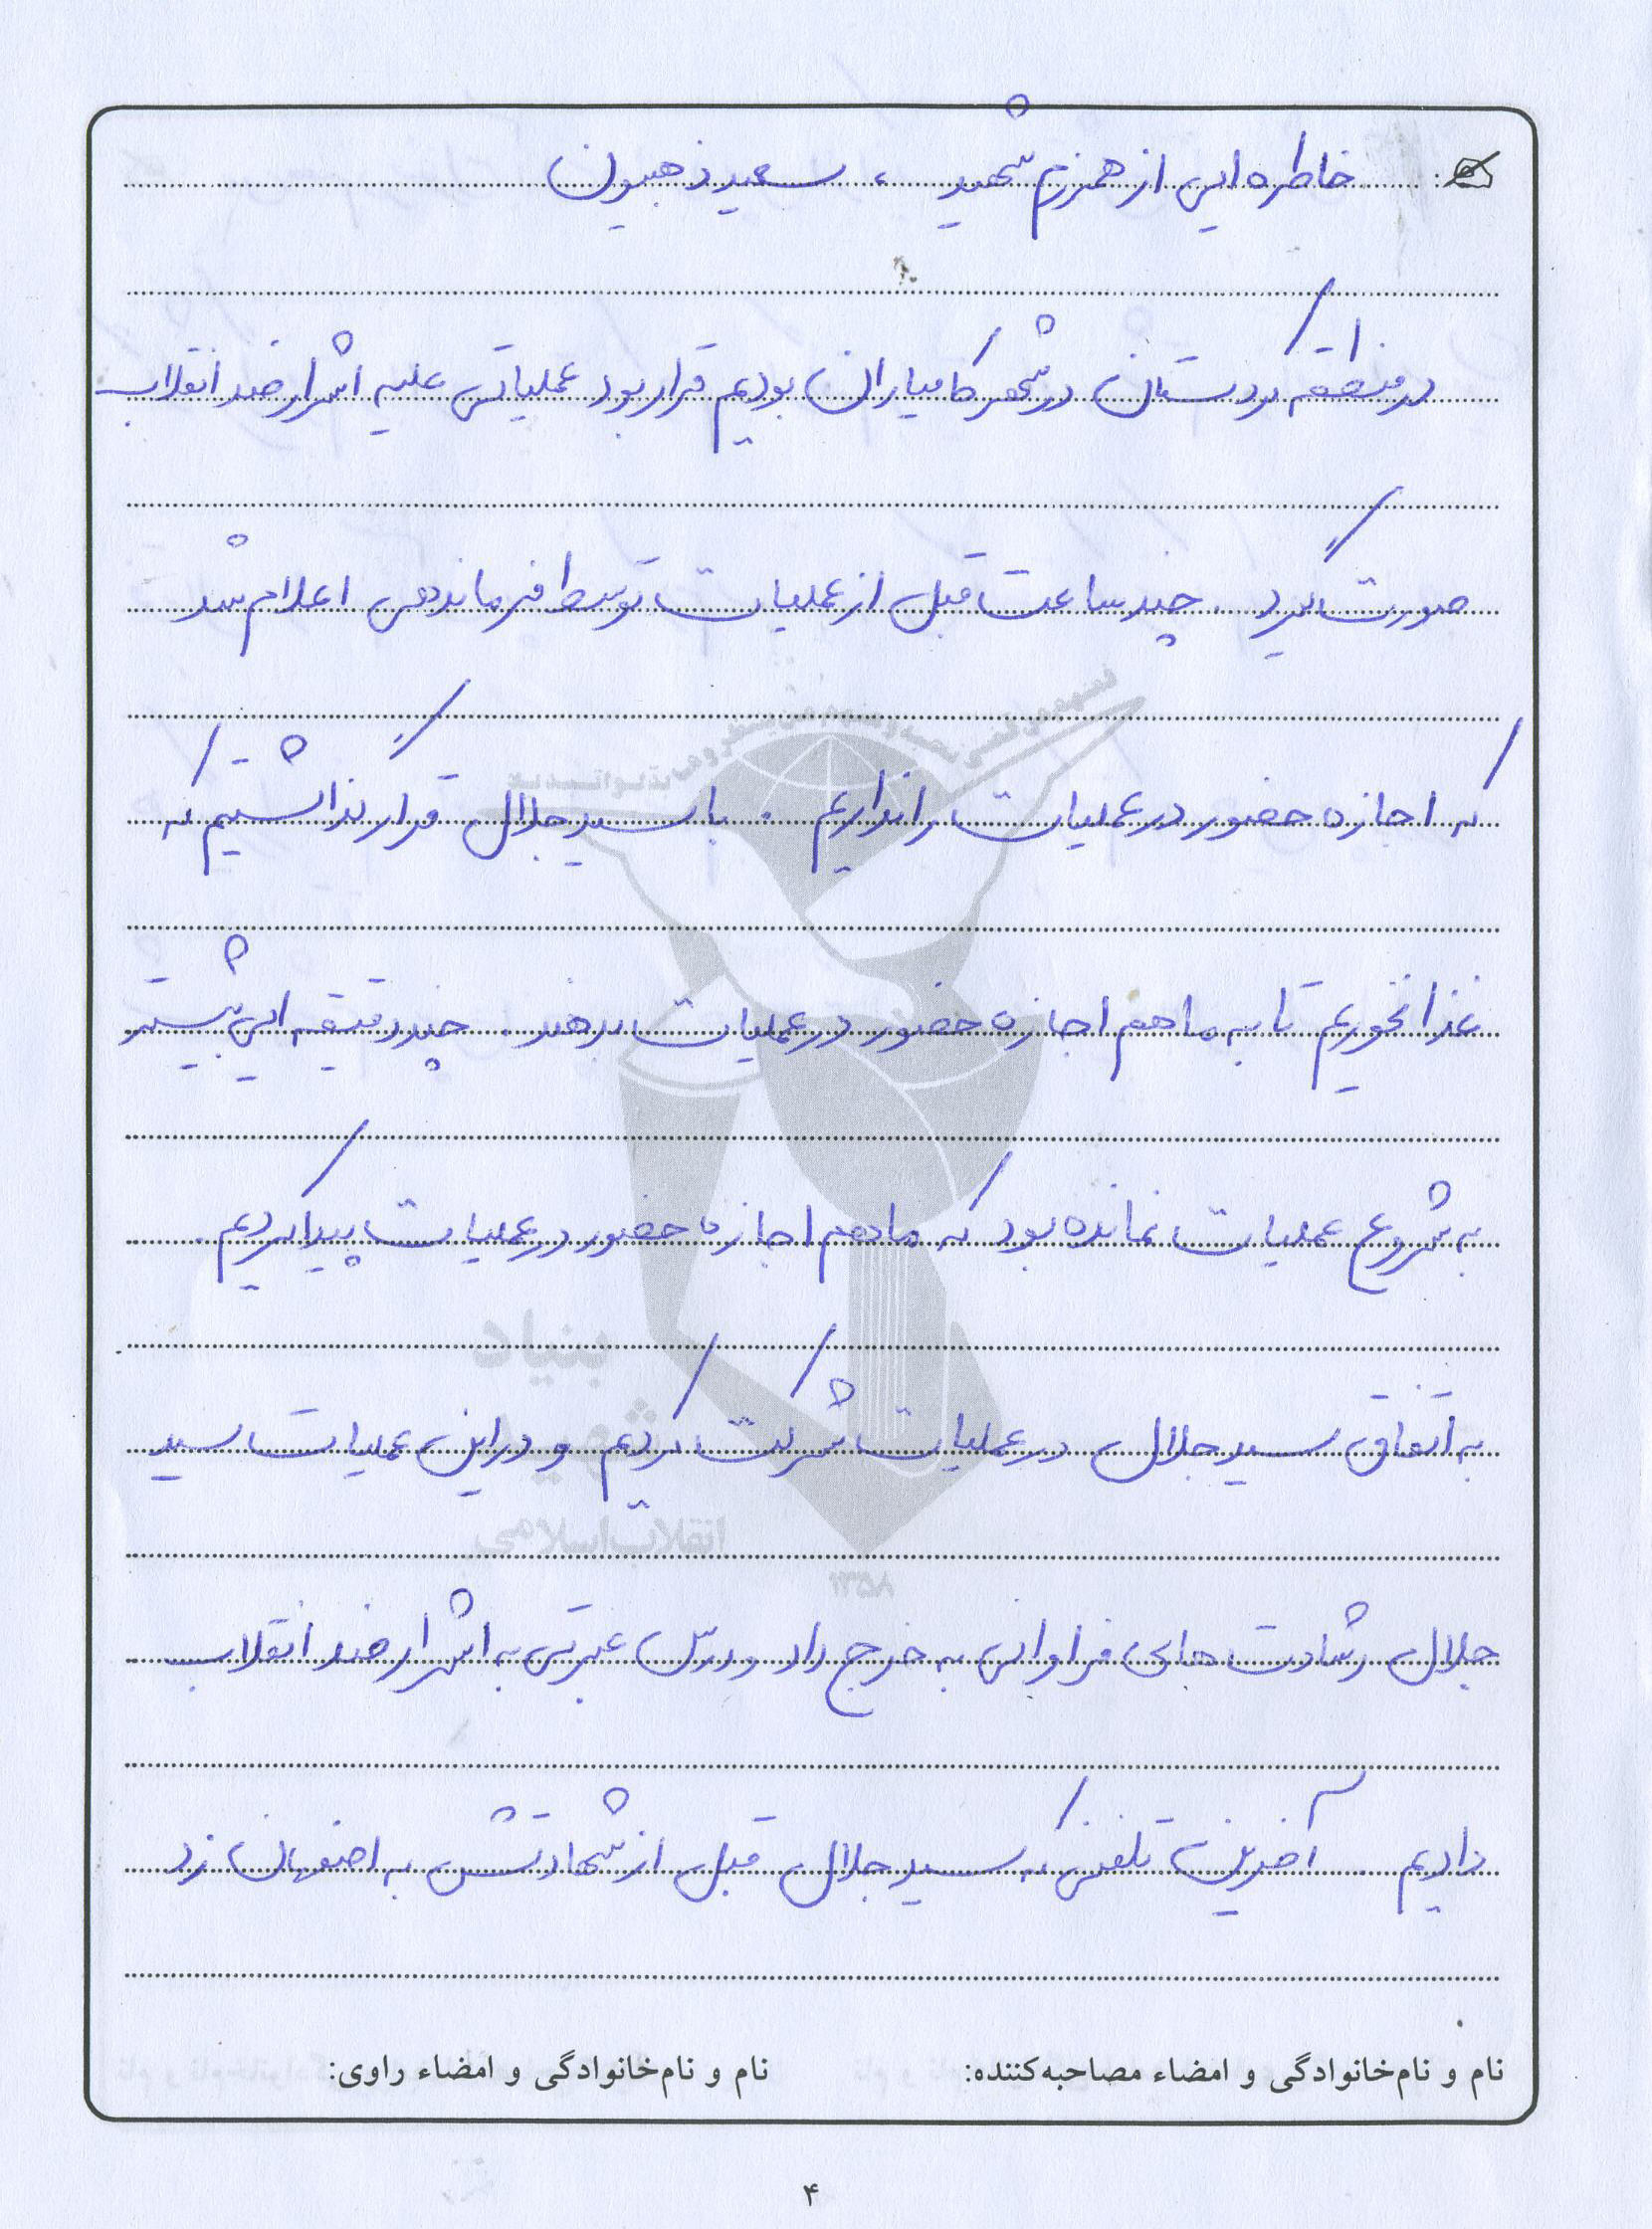 خاطره ایی از همرزم شهید ، سعید ذهبیون
در منطقه کردستان در شهر کامیاران بودیم قرار بود عملیاتی علیه اشرار ضد انقلاب
صورت گیرد . چند ساعت قبل از عملیات توسط فرماندهی اعلام شد
که اجازه حضور در عملیات را نداریم . با سید جلال قرار گذاشتیم که
غذا نخوریم تا به ما هم اجازه حضور در عملیات بدهند . چند دقیقه ایی بیشتر
به شروع عملیات نمانده بود که ما هم اجازه حضور در عملیات پیدا کردیم .
به اتفاق سید جلال در عملیات شرکت کردیم و در این عملیات سید
جلال رشادت های فراوانی به خرج داد و درس عبرتی به اشرار ضد انقلاب
دادیم . آخرین تلفنی که سید جلال قبل از شهادتش به اصفهان زد
بنیاد
شهید
انقلاب اسلامی
۱۳۵۸
نام و نام‌خانوادگی و امضاء مصاحبه‌کننده: نام و نام‌خانوادگی و امضاء راوی:
۴